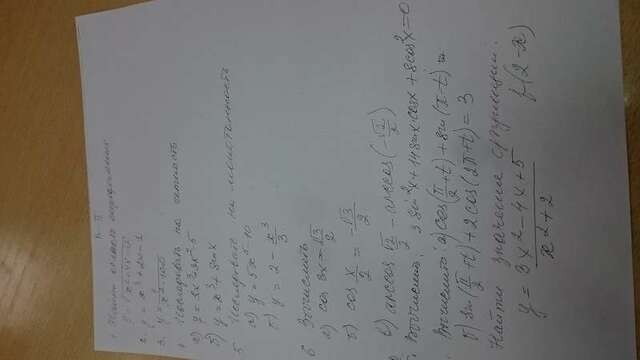 в-II
1. Найти область определения
y = √x²-4x-12
2. y = x³+2x-1
3. y =
4 Исследовать на четность
а) y = 3x³+2x²-5
б) y = x³+8sinx
5 Исследовать на монотонность
а) y = 5x⁵-10
б) y = 2 - x³/3
6 Вычислить
а) cos 3x = √3/2
б) cos x/2 = -√3/2
в) arccos √2/2 - arccos(-√2/2)
Вычислить. 3sin²x+14sinx·cosx+8cos²x=0
Вычислить: а) cos(π/2+t)+sin(π-t) =
б) sin(π/2+t)+2cos(2π+t)=3
Найти значение функции:
y = 3x²-4x+5/x²+2 f(2-x)